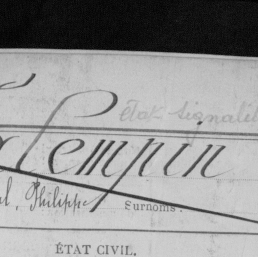 état signalét
Lempin
Philippe
Surnoms :
ÉTAT CIVIL.